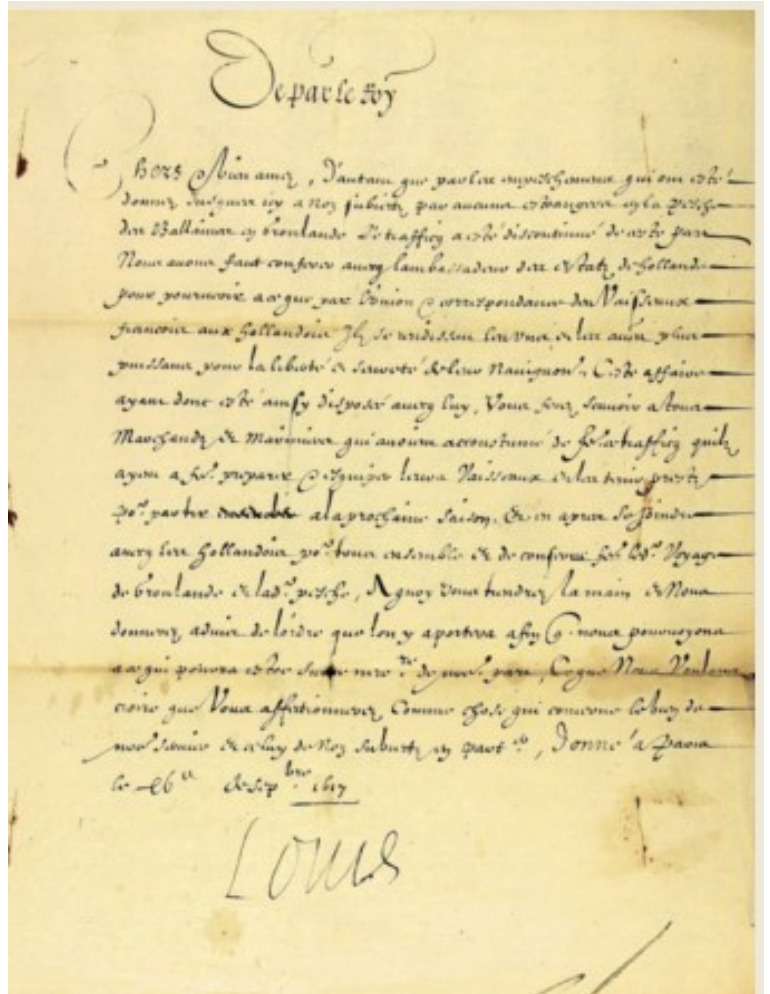 De par le Roy
Chers & bien amez, D'autant que par les empeschemens qui ont esté
donnez jusques icy a noz subiectz par aucuns estrangers en la pesche
des Ballaines en Groulande Le traffiq a esté discontinué de ceste part
Nous avons faict conferer avecq lambassadeur des estatz de hollande
pour pourvoir a ce que par l'Union & correspondance des Vaisseaux
francois aux hollandois Ilz se rendissent les uns et les autres plus
puissans pour la liberté et seureté de leur Navigaon. Ceste affaire
ayant donc esté ainsy disposé avecq luy, Vous ferez scavoir a tous
Marchandz et Mariniers qui avoient accoustumé de fe. ce traffiq quilz
ayent a fe. preparer & esquiper leurs Vaisseaux et les tenir prestz
po.r partir a la prochaine saison, Et en apres se joindre
avecq les hollandois po.r tous ensemble et de conserve fe. led. Voyage
de Groulande et lad. pesche, A quoy vous tiendrez la main et Nous
donnerez advis de l'ordre que lon y aportera afin q. nous pourvoyons
a ce qui pourra estre de nre. part, Ce que Nous Voulons
croire que Vous affectionnerez Comme chose qui concerne le bien de
nre. service et celuy de Noz subiectz en part.er, Donné a Paris
le 26.e de sep.bre 1617
Louis